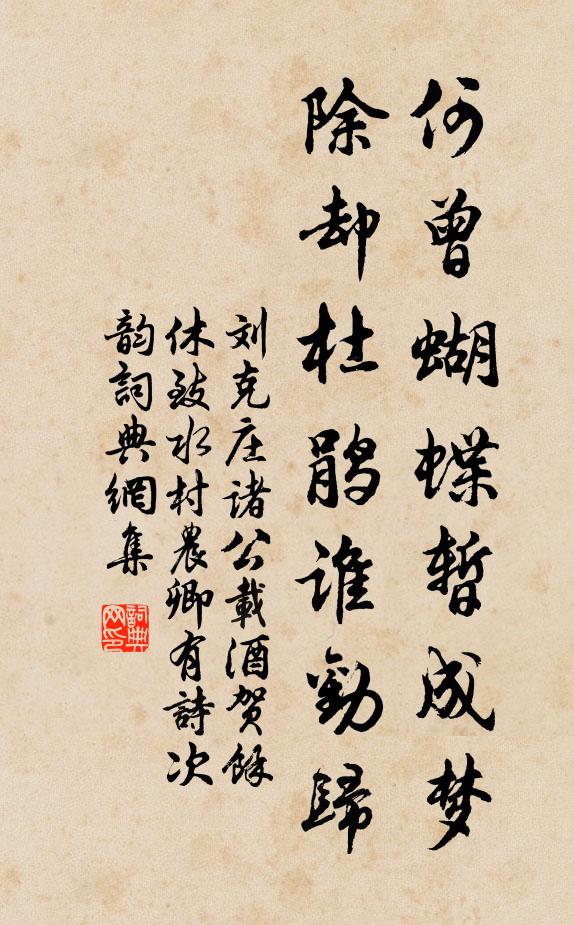 何曾蝴蝶暂成梦
除却杜鹃谁劝歸
刘克庄诸公載酒贺餘
休致水村農卿有詩次
韵詞典網集
詞典
网印